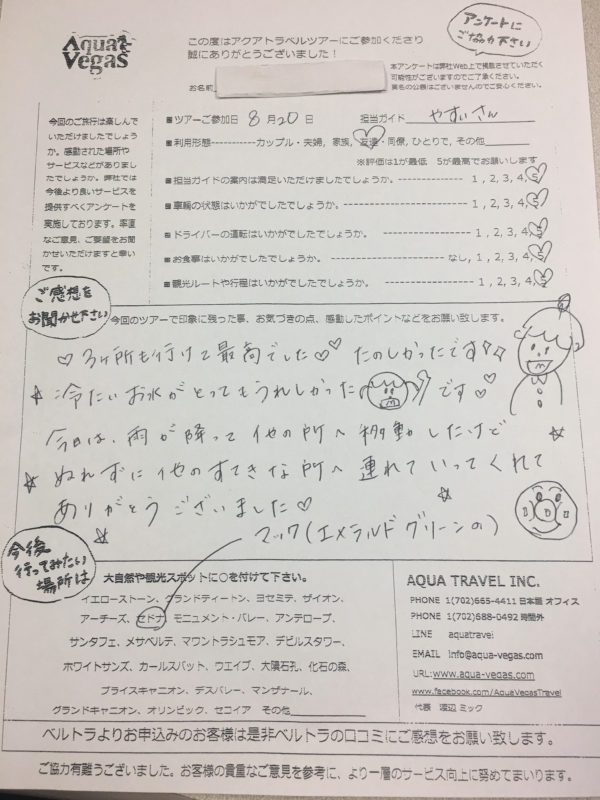 Aqua Vegas
この度はアクアトラベルツアーにご参加くださり
誠にありがとうございました！
アンケートに
ご協力下さい
本アンケートは弊社Web上で掲載させていただく
可能性がございますのでご了承ください。
実名の公表はございませんのでご安心ください。
お名前
今回のご旅行は楽しんで
いただけましたでしょう
か。感動された場所や
サービスなどがありまし
たでしょうか。弊社では
今後より良いサービスを
提供すべくアンケートを
実施しております。率直
なご意見、ご要望をお聞
かせいただけますと幸い
です。
■ツアーご参加日 8月20日 担当ガイド やすいさん
■利用形態------------カップル・夫婦, 家族, 友達・同僚, ひとりで, その他
※評価は1が最低 5が最高でお願いします
■担当ガイドの案内は満足いただけましたでしょうか。---------------- 1 , 2, 3, 4, 5
■車輌の状態はいかがでしたでしょうか。---------------- 1 , 2, 3, 4, 5
■ドライバーの運転はいかがでしたでしょうか。 ---------------- 1 , 2, 3, 4, 5
■お食事はいかがでしたでしょうか。 ---------------- なし, 1 , 2, 3, 4, 5
■観光ルートや行程はいかがでしたでしょうか。 ---------------- 1 , 2, 3, 4, 5
ご感想を
お聞かせ下さい
今回のツアーで印象に残った事、お気づきの点、感動したポイントなどをお願い致します。
♡3ヶ所も行けて最高でした♡♡ たのしかったです☆☆
★冷たいお水がとってもうれしかったです♡
今日は、雨が降って他の所へ移動したけど
☆ぬれずに他のすてきな所へ連れていってくれて
ありがとうございました♡
マック(エメラルドグリーンの)
今後
行ってみたい
場所は
大自然や観光スポットに○を付けて下さい。
イエローストーン、グランドティートン、ヨセミテ、ザイオン、
アーチーズ、セドナ、モニュメント・バレー、アンテロープ、
サンタフェ、メサベルテ、マウントラシュモア、デビルスタワー、
ホワイトサンズ、カールスバット、ウエイブ、大隕石孔、化石の森、
ブライスキャニオン、デスバレー、マンザナール、
グランドキャニオン、オリンピック、セコイア その他
AQUA TRAVEL INC.
PHONE 1(702)665-4411 日本語 オフィス
PHONE 1(702)688-0492 時間外
LINE aquatravel
EMAIL info@aqua-vegas.com
URL:www.aqua-vegas.com
www.facebook.com/AquaVegasTravel
代表 渡辺 ミック
ベルトラよりお申込みのお客様は是非ベルトラの口コミにご感想をお願い致します。
ご協力有難うございました。お客様の貴重なご意見を参考に、より一層のサービス向上に努めてまいります。